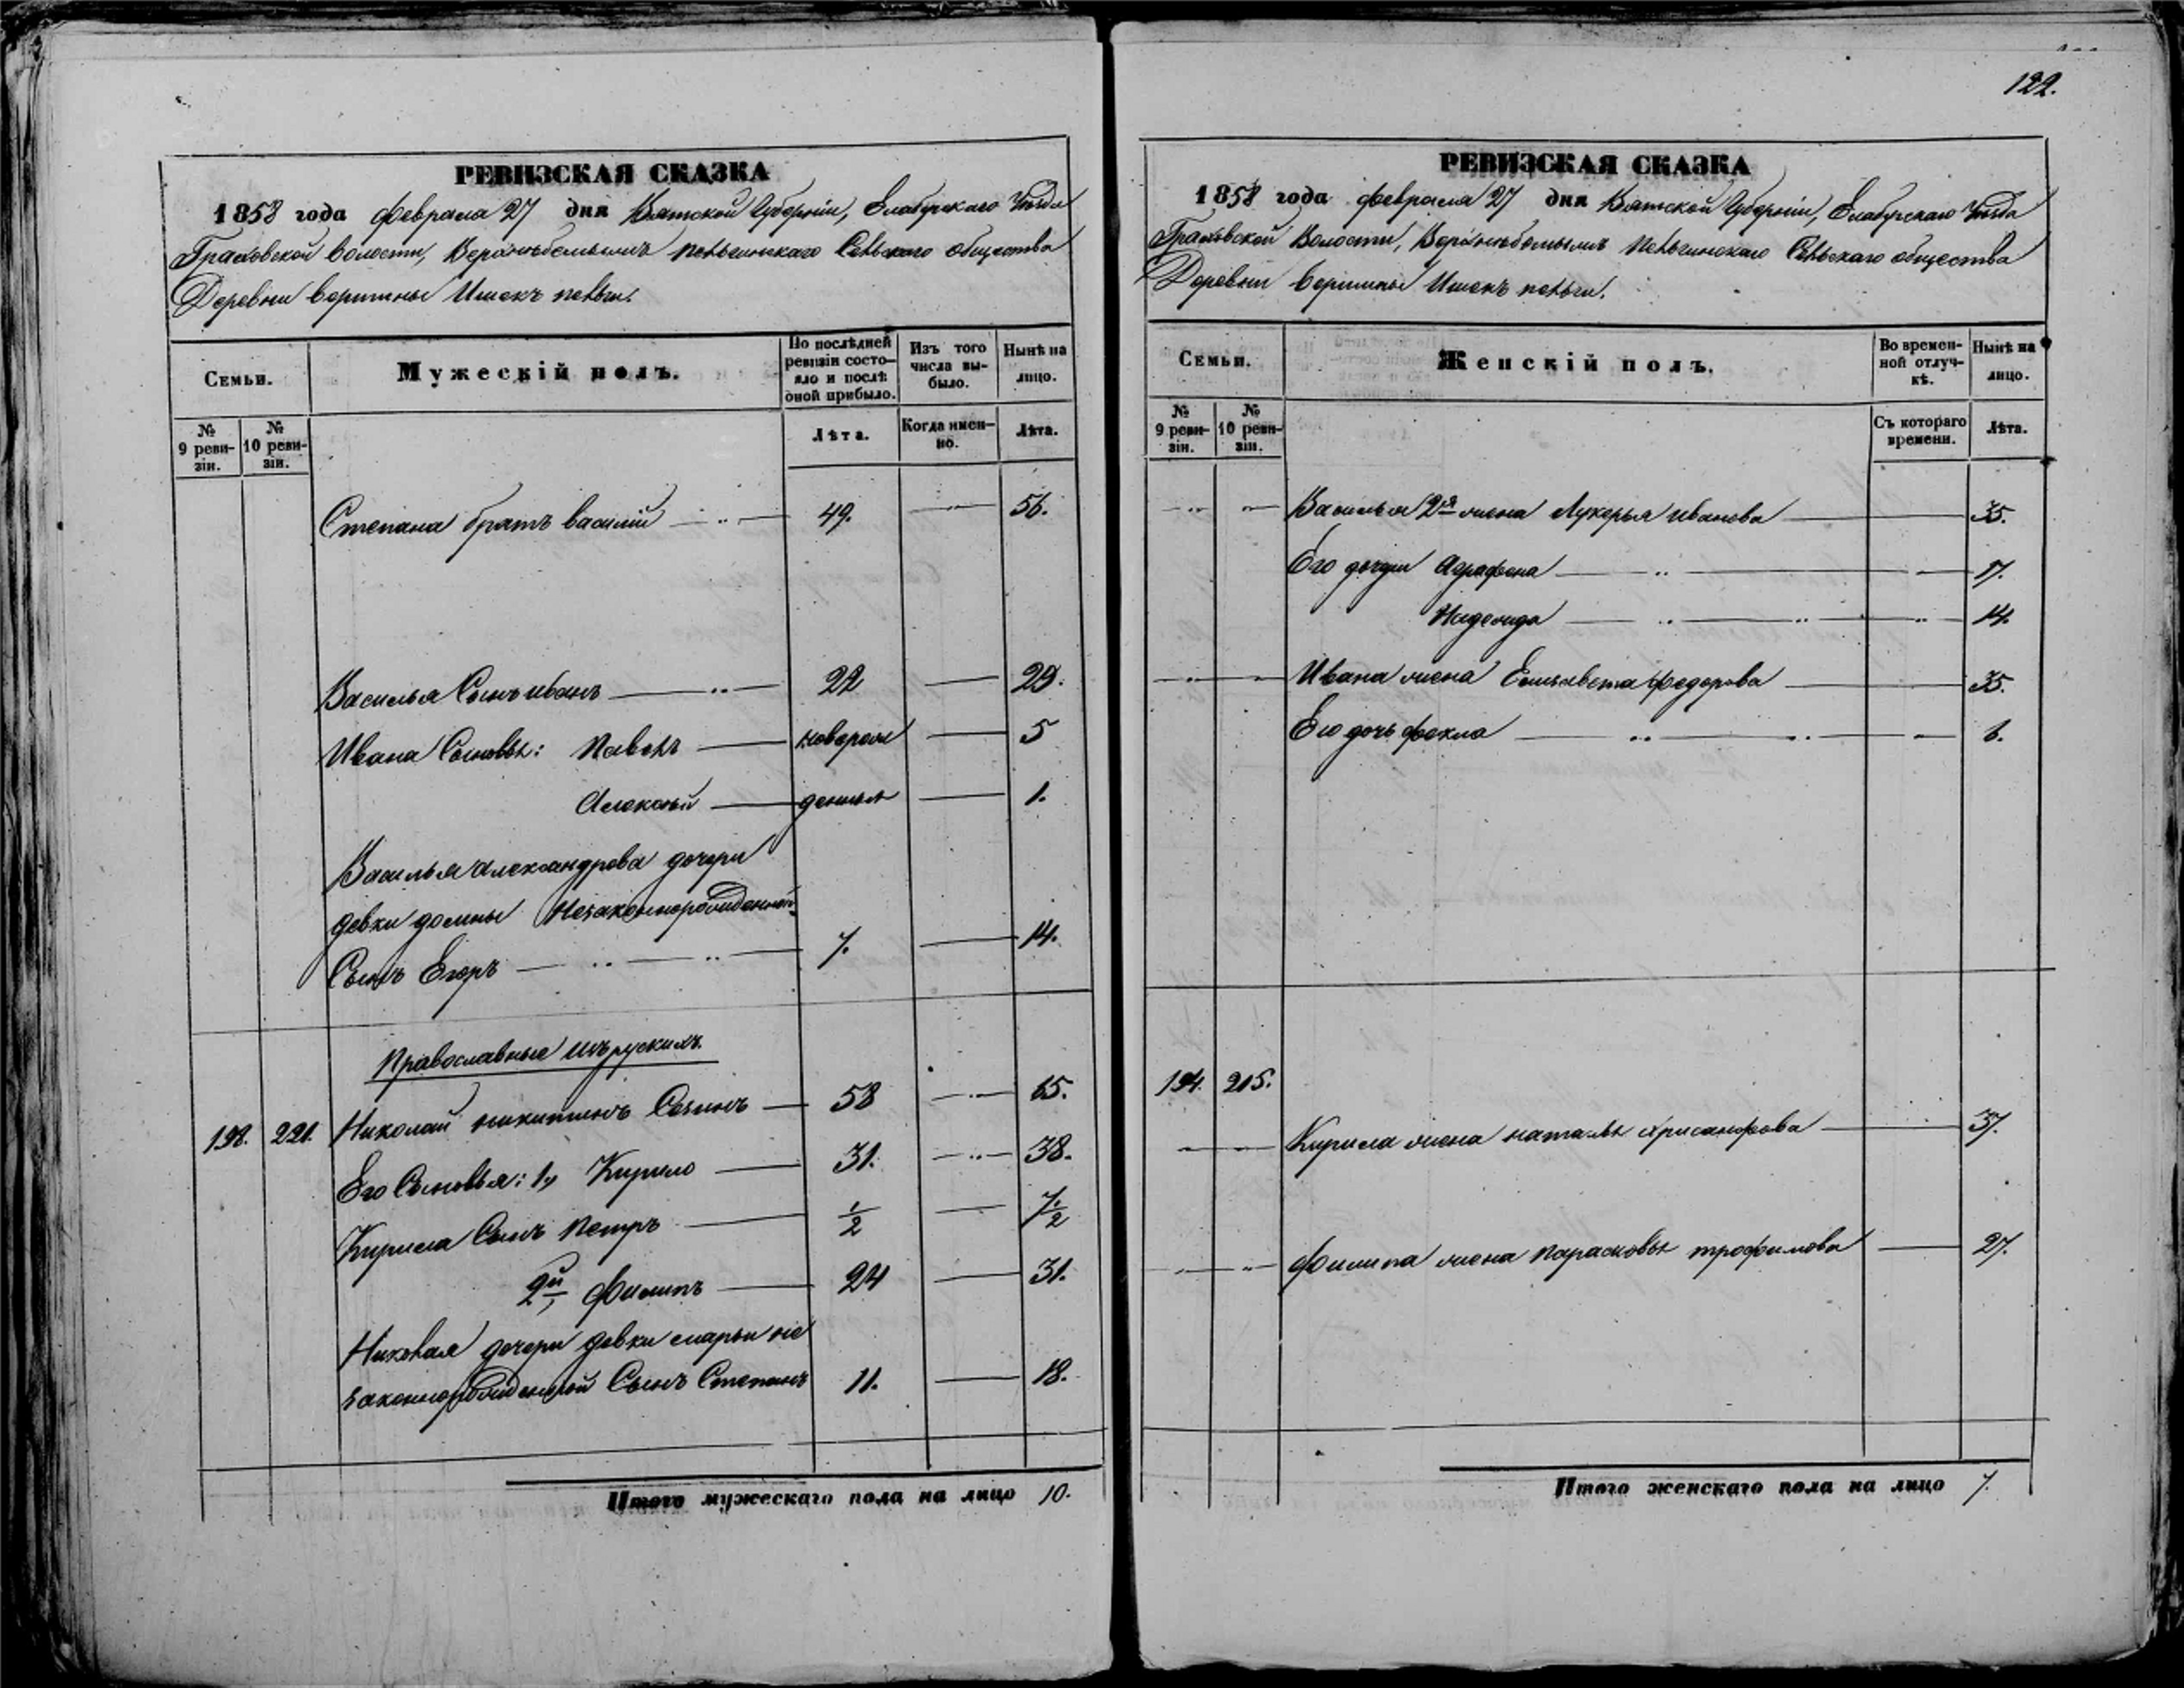 122.
РЕВИЗСКАЯ СКАЗКА
1858 года февраля 27 дня Вятской Губерніи, Елабужскаго Уѣзда
Граховской Волости, Сельскаго общества
Деревни Вершины Ишекъ пельги.
Семьи.
Мужескій полъ.
По послѣдней ревизіи состояло и послѣ оной прибыло.
Изъ того числа выбыло.
Нынѣ на лицо.
№ 9 ревизіи.
№ 10 ревизіи.
Лѣта.
Когда именно.
Лѣта.
Степана братъ Василій 49. 56.
Василья Сынъ Иванъ 22 29.
Ивана Сыновья: Павелъ новорож 5
Алексѣй денныя 1.
Василья Александрова дочери
девки домны Незаконнорожденной
Сынъ Егоръ 7. 14.
Православные изъ рускихъ.
198. 221. Николай никитинъ Сынъ 58 65.
Его Сыновья: 1, Кирило 31. 38.
Кирила Сынъ Петръ 1/2 7 1/2
2й, Филипъ 24 31.
Николая дочери девки марьи не
законнорожденной Сынъ Степанъ 11. 18.
Итого мужескаго пола на лицо 10.
РЕВИЗСКАЯ СКАЗКА
1858 года февраля 27 дня Вятской Губерніи, Елабужскаго Уѣзда
Граховской Волости, Сельскаго общества
Деревни Вершины Ишекъ пельги.
Семьи.
Женскій полъ.
Во временной отлучкѣ.
Нынѣ на лицо.
№ 9 ревизіи.
№ 10 ревизіи.
Съ котораго времени.
Лѣта.
Василья 2я жена Лукерья Иванова 35.
Его дочери Аграфена 17.
Надежда 14.
Ивана жена Елизавета Федорова 35.
Его дочь Фекла 6.
194. 215.
Кирила жена наталья хрисанфова 37.
Филипа жена парасковья трофимова 27.
Итого женскаго пола на лицо 7.